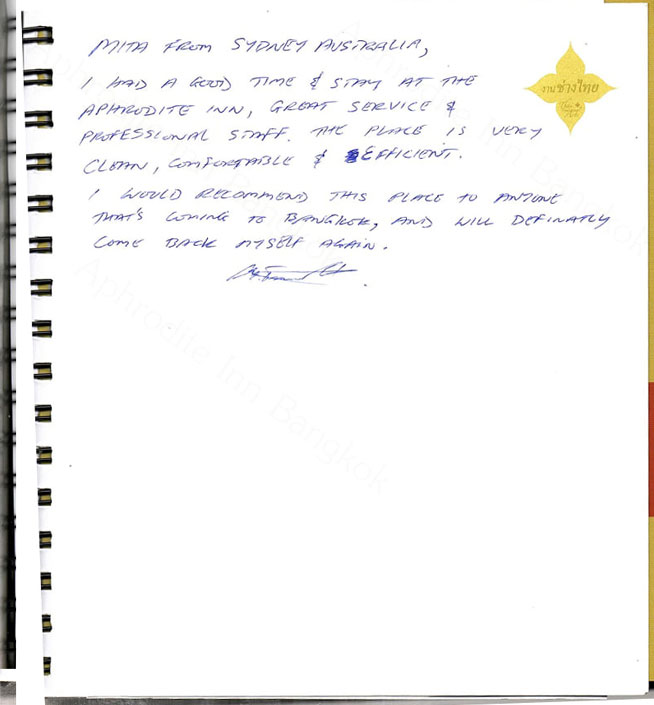 MITA FROM SYDNEY AUSTRALIA,
งานช่างไทย
I HAD A GOOD TIME & STAY AT THE
APHRODITE INN, GREAT SERVICE &
PROFESSIONAL STAFF. THE PLACE IS VERY
CLEAN, COMFORTABLE & EFFICIENT.
I WOULD RECOMMEND THIS PLACE TO ANYONE
THAT'S COMING TO BANGKOK, AND WILL DEFINATLY
COME BACK MYSELF AGAIN.
Aphrodite Inn Bangkok
Aphrodite Inn Bangkok